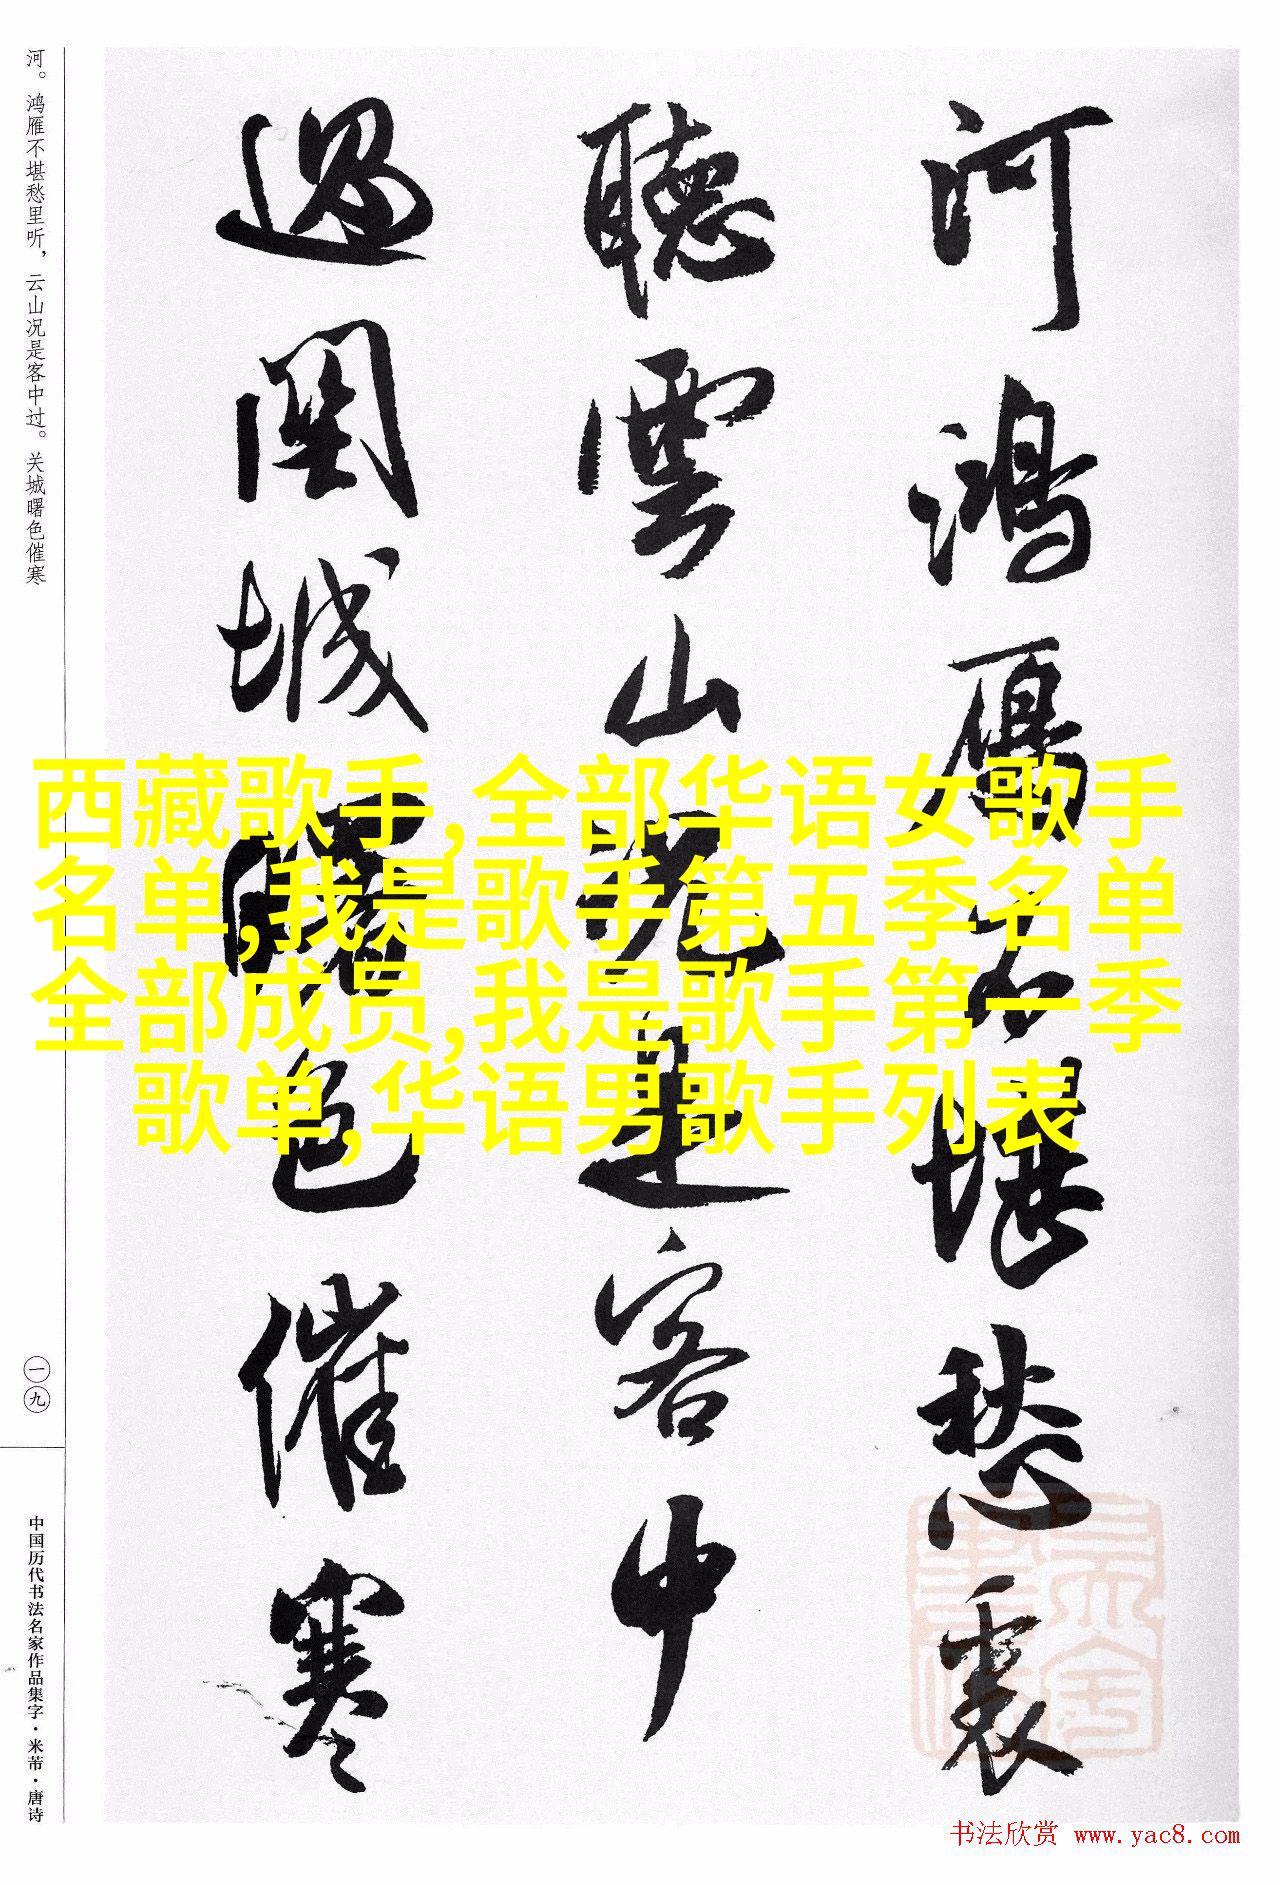 河鴻鴈不堪愁裏
聽雲山況是客中
過関城曙色催寒
河。鸿雁不堪愁里听，云山况是客中过。关城曙色催寒
一九
中国历代书法名家作品集字·米芾·唐诗
西藏歌手,全部华语女歌手
名单,我是歌手第五季名单
全部成员,我是歌手第一季
歌单,华语男歌手列表
书法欣赏 www.yac8.com